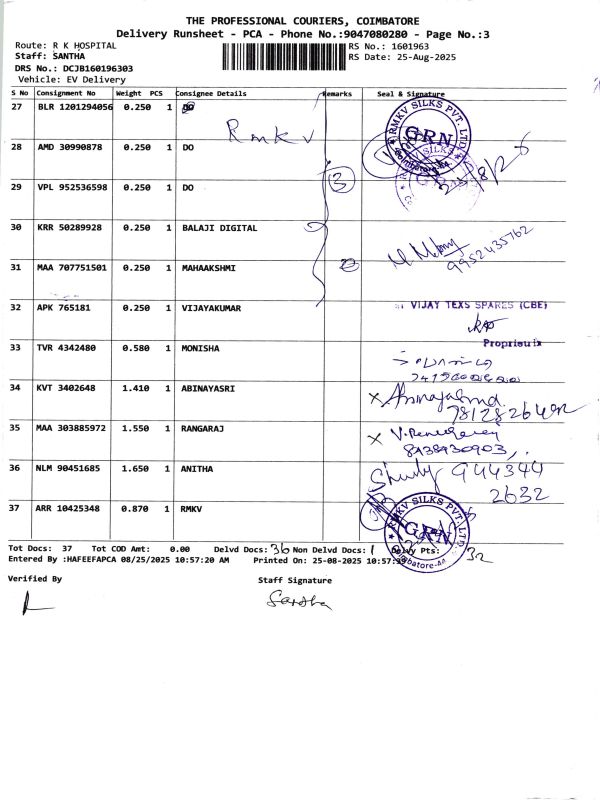 THE PROFESSIONAL COURIERS, COIMBATORE
Delivery Runsheet - PCA - Phone No.:9047080280 - Page No.:3
Route: R K HOSPITAL
RS No.: 1601963
Staff: SANTHA
RS Date: 25-Aug-2025
DRS No.: DCJB160196303
Vehicle: EV Delivery
S No Consignment No Weight PCS Consignee Details Remarks Seal & Signature
27 BLR 1201294056 0.250 1
Rmkv
RMKV SILKS PVT. LTD.
GRN
Coimbatore
28 AMD 30990878 0.250 1 DO
29 VPL 952536598 0.250 1 DO
3
30 KRR 50289928 0.250 1 BALAJI DIGITAL
9952435762
31 MAA 707751501 0.250 1 MAHAAKSHMI
32 APK 765181 0.250 1 VIJAYAKUMAR
VIJAY TEXS SPARES (CBE)
Proprietrix
33 TVR 4342480 0.580 1 MONISHA
34 KVT 3402648 1.410 1 ABINAYASRI
35 MAA 303885972 1.550 1 RANGARAJ
36 NLM 90451685 1.650 1 ANITHA
944344
2632
37 ARR 10425348 0.870 1 RMKV
RMKV SILKS PVT. LTD.
GRN
Coimbatore
Tot Docs: 37 Tot COD Amt: 0.00 Delvd Docs: 36 Non Delvd Docs: 1 Delvy Pts: 32
Entered By :HAFEEFAPCA 08/25/2025 10:57:20 AM Printed On: 25-08-2025 10:57:39
Verified By
Staff Signature
Santha